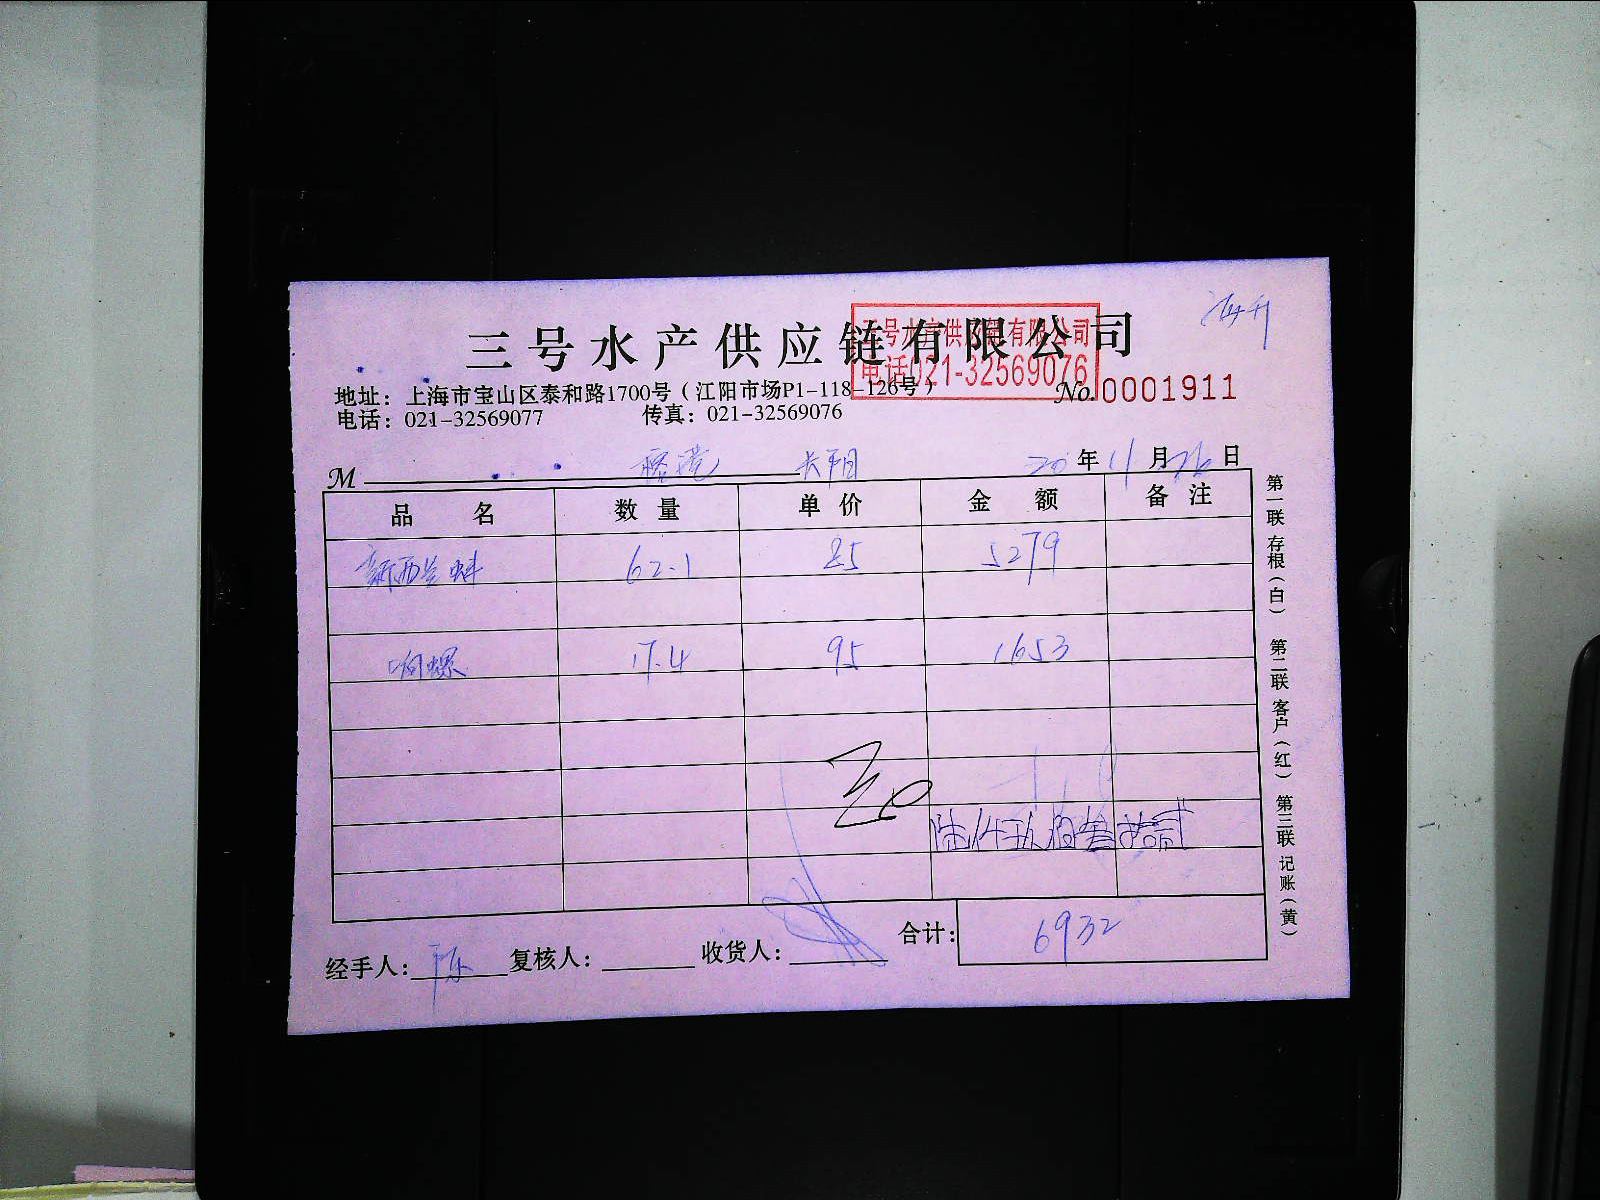 三号水产供应链有限公司
三号水产供应链有限公司
电话021-32569076
地址：上海市宝山区泰和路1700号（江阳市场P1-118-126号）
No.0001911
电话：021-32569077 传真：021-32569076
M 长阳 20年11月26日
品名 数量 单价 金额 备注
新西兰蚌 62.1 85 5279
响螺 17.4 95 1653
陆仟玖佰叁拾贰
合计：6932
经手人：陈 复核人： 收货人：
第一联存根（白） 第二联客户（红） 第三联记账（黄）